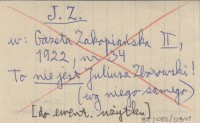 J. Z.
w: Gazeta Zakopiańska II,
1922, nr 34
To nie jest Juliusz Zborowski!
(wg niego samego)
[do ewent. użytku]